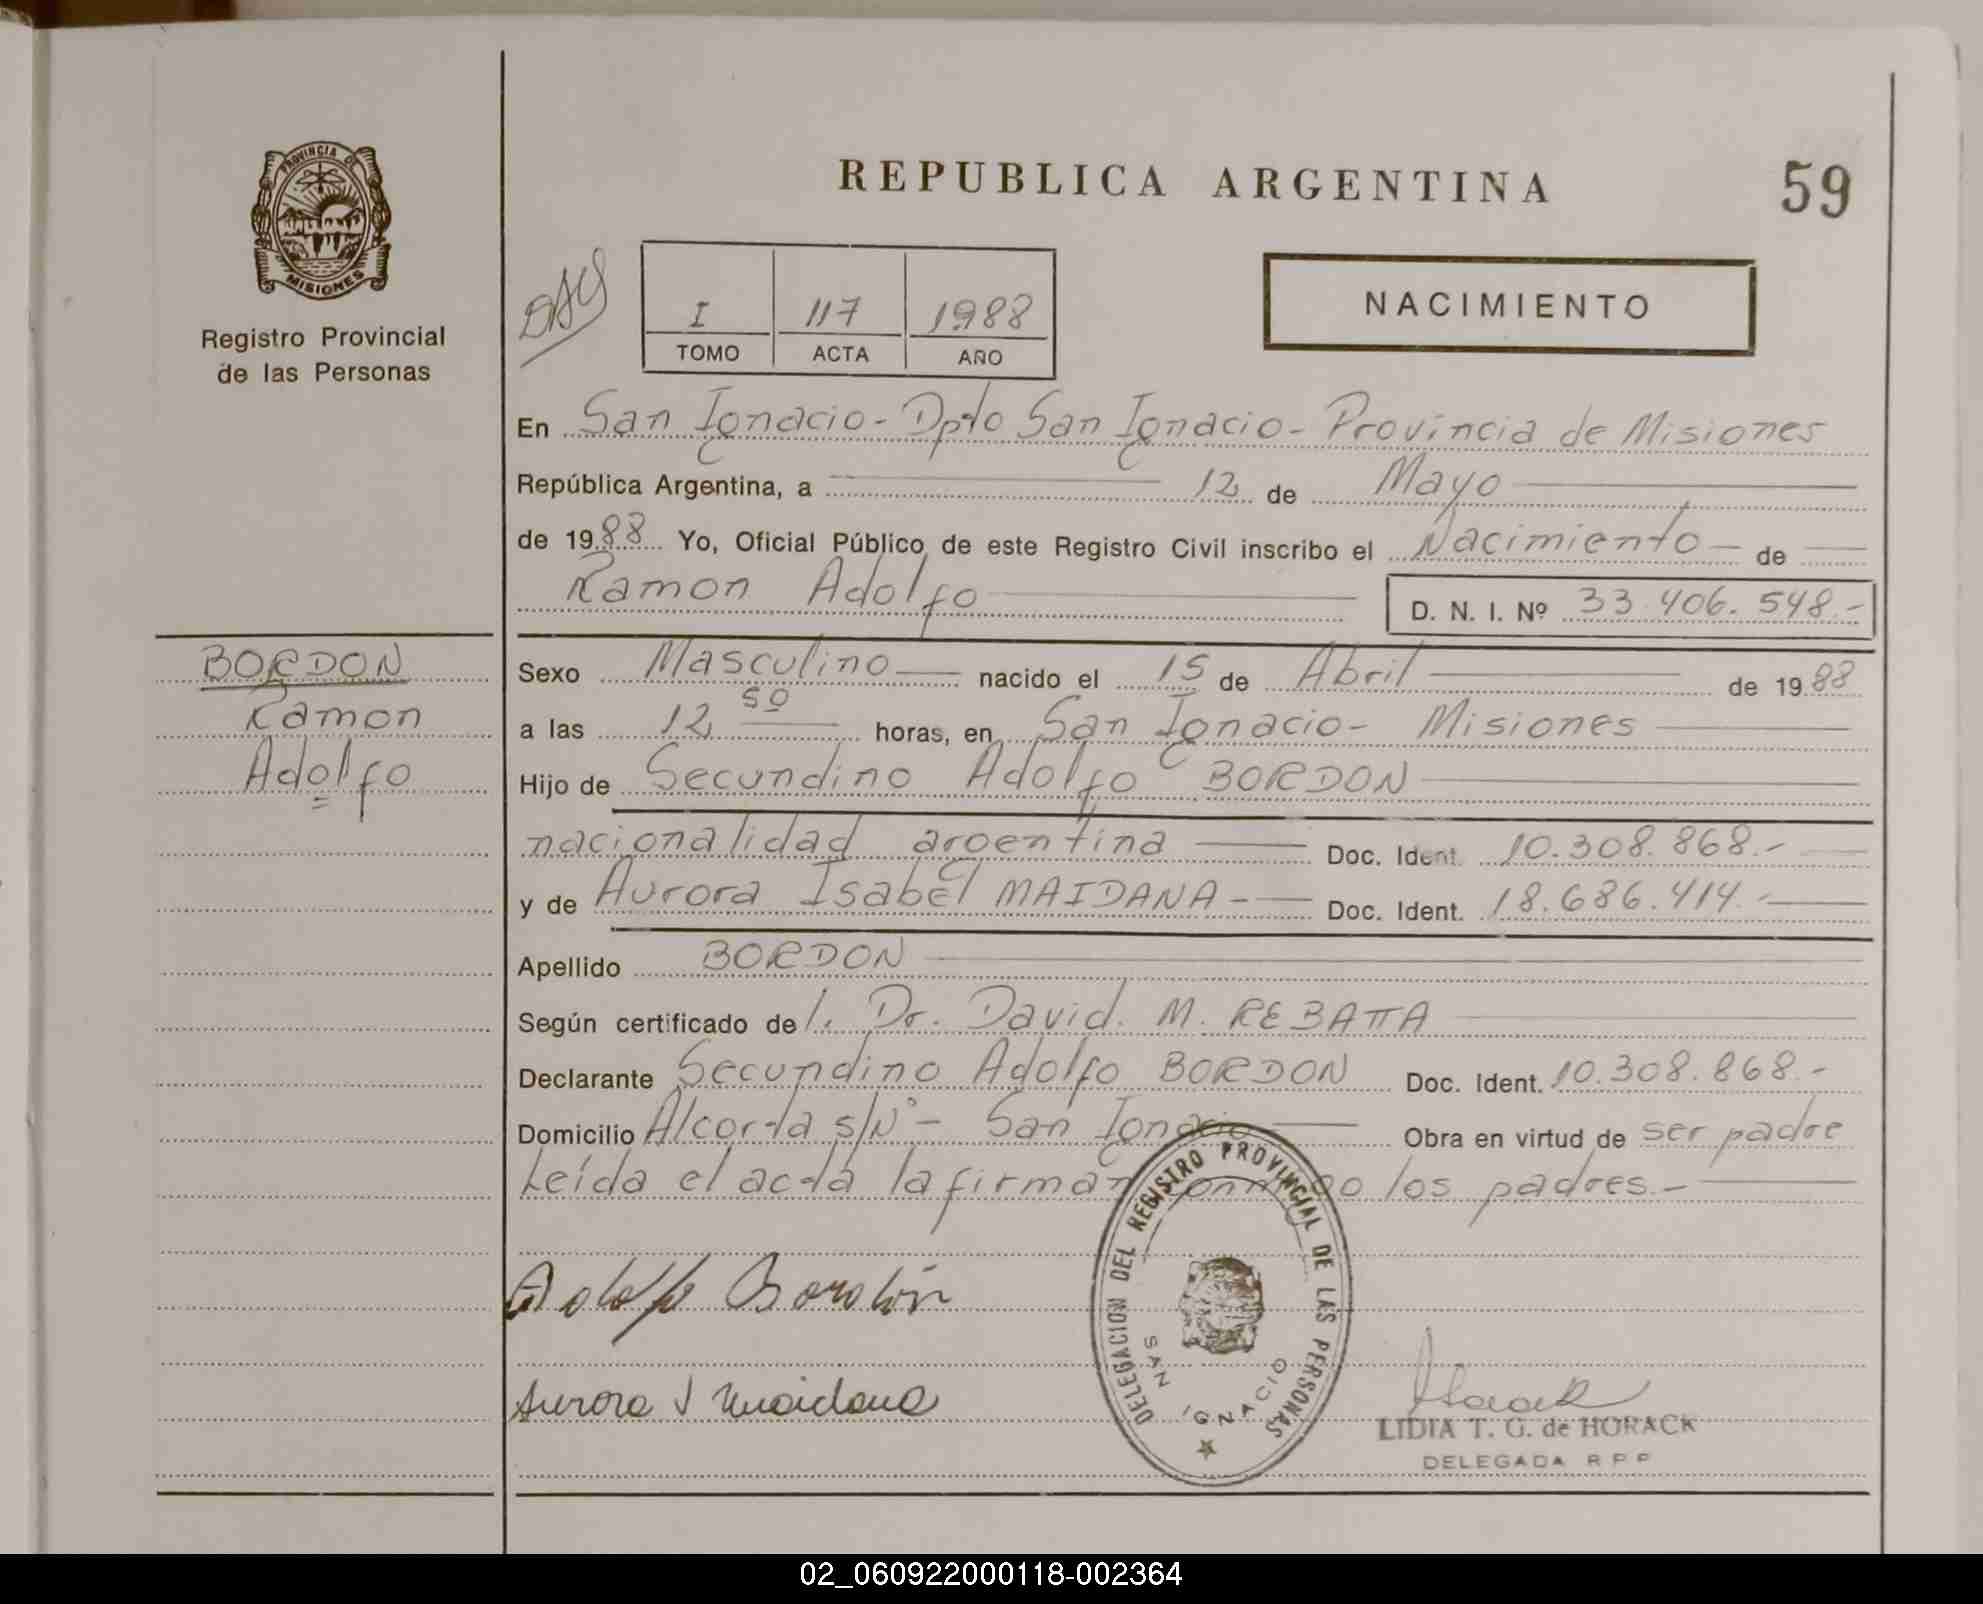 REPUBLICA ARGENTINA
59
PROVINCIA DE MISIONES
Registro Provincial
de las Personas
I 117 1988
TOMO ACTA AÑO
NACIMIENTO
En San Ignacio - Dpto San Ignacio - Provincia de Misiones
República Argentina, a 12 de Mayo
de 1988 Yo, Oficial Público de este Registro Civil inscribo el Nacimiento - de
Ramon Adolfo D. N. I. Nº 33.406.548.-
BORDON
Ramon
Adolfo
Sexo Masculino nacido el 15 de Abril de 1988
a las 12 50 horas, en San Ignacio - Misiones
Hijo de Secundino Adolfo BORDON
nacionalidad argentina Doc. Ident. 10.308.868.-
y de Aurora Isabel MAIDANA - Doc. Ident. 18.686.414.-
Apellido BORDON
Según certificado de l. Dr. David. M. REBATTA
Declarante Secundino Adolfo BORDON Doc. Ident. 10.308.868.-
Domicilio Alcorta s/Nº - San Ignacio Obra en virtud de ser padre
Leída el acta la firman conmigo los padres.-
Adolfo Bordón
Aurora I Maidana
DELEGACION DEL REGISTRO PROVINCIAL DE LAS PERSONAS
SAN IGNACIO
Horack
LIDIA T. G. de HORACK
DELEGADA R P P
02_060922000118-002364